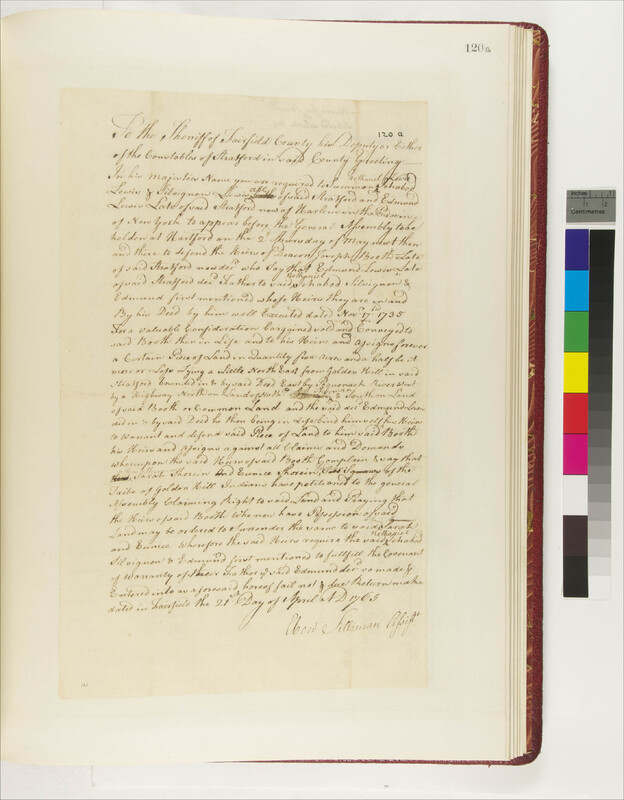 120a
120 a
To the Sheriff of Fairfield County his Deputy or Either
of the Constables of Stratford in said County Greeting
In his Majesties Name you are required to Summon Nathaniel Lewis Ichabod
Lewis & of said Stratford and Edmund
Lewis Late of said Stratford now of Harlem in the Province
of New York to appear before the General Assembly to be
holden at Hartford on the 2d Thursday of May next then
and there to defend the Heirs of Deacon Joseph Booth Late
of said Stratford now decd who Say that Edmund Lewis Late
of said Stratford decd Father to said Nathaniel Ichabod &
Edmund first mentioned whose Heirs they are in and
By his Deed by him well Executed dated Novr 17th 1735
For a valuable Consideration bargained sold and Conveyed to
said Booth then in Life and to his Heirs and assigns forever
a Certain Piece of Land in Quantity five acres and a half be it
more or Less Lying a Little North East from Golden Hill in said
Stratford bounded in & by said Deed East by River West
by a Highway North on Land of & South on Land
of said Booth or Common Land and the said decd Edmund Lewis
did in & by said Deed he then being in Life bind himself his Heirs
to Warrant and defend said Piece of Land to him said Booth
his Heirs and assigns against all Claims and Demands
whereupon the said Heirs of said Booth Complain & say that
Sarah Shoein and Eunice Shoein of the
Tribe of Golden Hill Indians have petitioned to the general
Assembly Claiming Right to said Land and Praying that
the Heirs of said Booth who now have Possession of said
Land may be ordered to Surrender the same to said Sarah
and Eunice Wherefore the said Heirs require the said Nathaniel Ichabod
& Edmund first mentioned to fullfill the Covenant
of Warranty of their Father ye said Edmund decd so made &
Entered into as aforesaid hereof fail not & due Return make
dated in Fairfield the 21st Day of April AD 1763
Ebenr Silliman Assist
inches 1 2
Centimetres